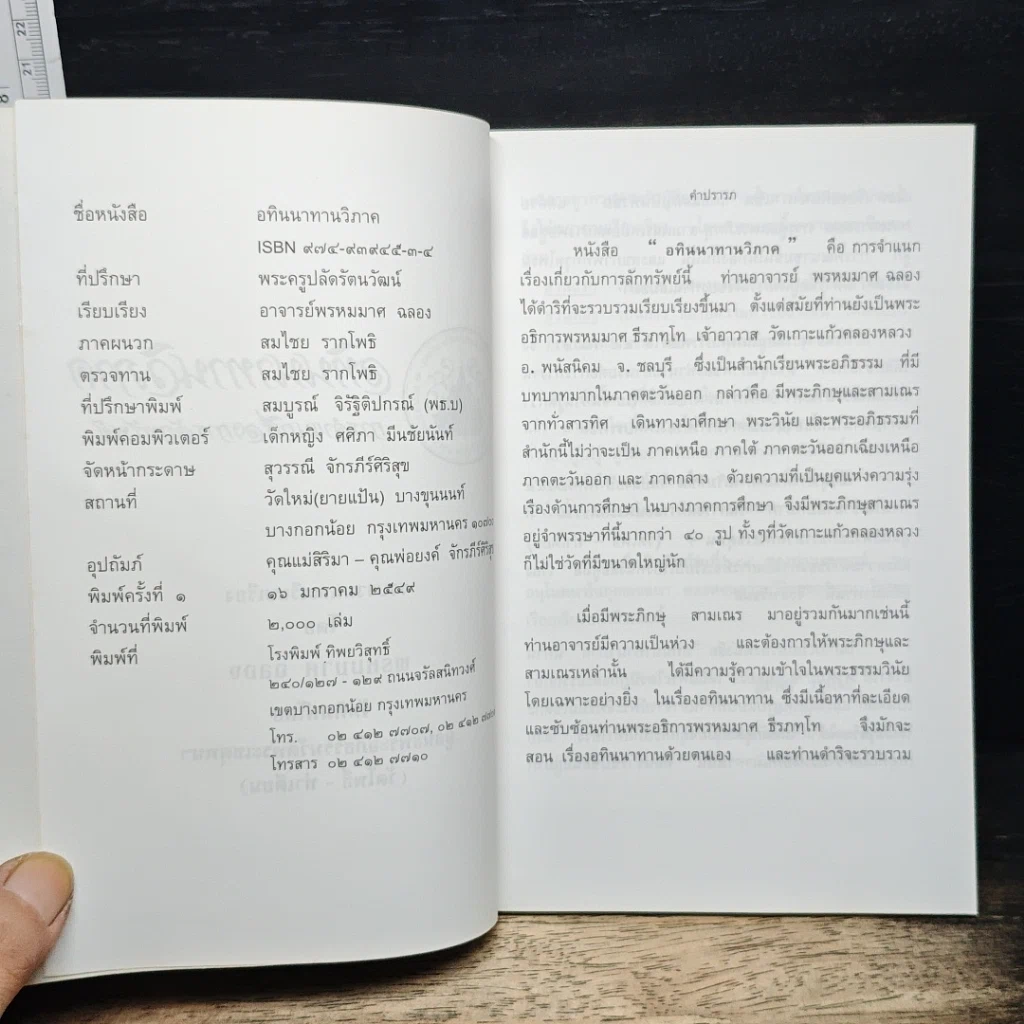 ชื่อหนังสือ อทินนาทานวิภาค
ISBN ๙๗๔-๙๓๙๔๕๕-๓-๔
ที่ปรึกษา พระครูปลัดรัตนวัฒน์
เรียบเรียง อาจารย์พรหมมาศ ฉลอง
ภาคผนวก สมไชย รากโพธิ
ตรวจทาน สมไชย รากโพธิ
ที่ปรึกษาพิมพ์ สมบูรณ์ จิรัฐิติปกรณ์ (พธ.บ)
พิมพ์คอมพิวเตอร์ เด็กหญิง ศศิภา มีนชัยนันท์
จัดหน้ากระดาษ สุวรรณี จักรภีร์ศิริสุข
สถานที่ วัดใหม่(ยายแป้น) บางขุนนนท์
บางกอกน้อย กรุงเทพมหานคร ๑๐๗๐๐
อุปถัมภ์ คุณแม่สิริมา – คุณพ่อยงค์ จักรภีร์ศิริสุข
พิมพ์ครั้งที่ ๑ ๑๖ มกราคม ๒๕๔๙
จำนวนที่พิมพ์ ๒,๐๐๐ เล่ม
พิมพ์ที่ โรงพิมพ์ ทิพยวิสุทธิ์
๒๔๐/๑๒๗ - ๑๒๙ ถนนจรัลสนิทวงศ์
เขตบางกอกน้อย กรุงเทพมหานคร
โทร. ๐๒ ๔๑๒ ๗๗๐๗, ๐๒ ๔๑๒
โทรสาร ๐๒ ๔๑๒ ๗๗๑๐
คำปรารภ
หนังสือ “ อทินนาทานวิภาค ” คือ การจำแนก
เรื่องเกี่ยวกับการลักทรัพย์นี้ ท่านอาจารย์ พรหมมาศ ฉลอง
ได้ดำริที่จะรวบรวมเรียบเรียงขึ้นมา ตั้งแต่สมัยที่ท่านยังเป็นพระ
อธิการพรหมมาศ ธีรภทฺโท เจ้าอาวาส วัดเกาะแก้วคลองหลวง
อ. พนัสนิคม จ. ชลบุรี ซึ่งเป็นสำนักเรียนพระอภิธรรม ที่มี
บทบาทมากในภาคตะวันออก กล่าวคือ มีพระภิกษุและสามเณร
จากทั่วสารทิศ เดินทางมาศึกษา พระวินัย และพระอภิธรรมที่
สำนักนี้ไม่ว่าจะเป็น ภาคเหนือ ภาคใต้ ภาคตะวันออกเฉียงเหนือ
ภาคตะวันออก และ ภาคกลาง ด้วยความที่เป็นยุคแห่งความรุ่ง
เรืองด้านการศึกษา ในบางภาคการศึกษา จึงมีพระภิกษุสามเณร
อยู่จำพรรษาที่นี้มากกว่า ๔๐ รูป ทั้งๆที่วัดเกาะแก้วคลองหลวง
ก็ไม่ใช่วัดที่มีขนาดใหญ่นัก
เมื่อมีพระภิกษุ สามเณร มาอยู่รวมกันมากเช่นนี้
ท่านอาจารย์มีความเป็นห่วง และต้องการให้พระภิกษุและ
สามเณรเหล่านั้น ได้มีความรู้ความเข้าใจในพระธรรมวินัย
โดยเฉพาะอย่างยิ่ง ในเรื่องอทินนาทาน ซึ่งมีเนื้อหาที่ละเอียด
และซับซ้อนท่านพระอธิการพรหมมาศ ธีรภทฺโท จึงมักจะ
สอน เรื่องอทินนาทานด้วยตนเอง และท่านดำริจะรวบรวม